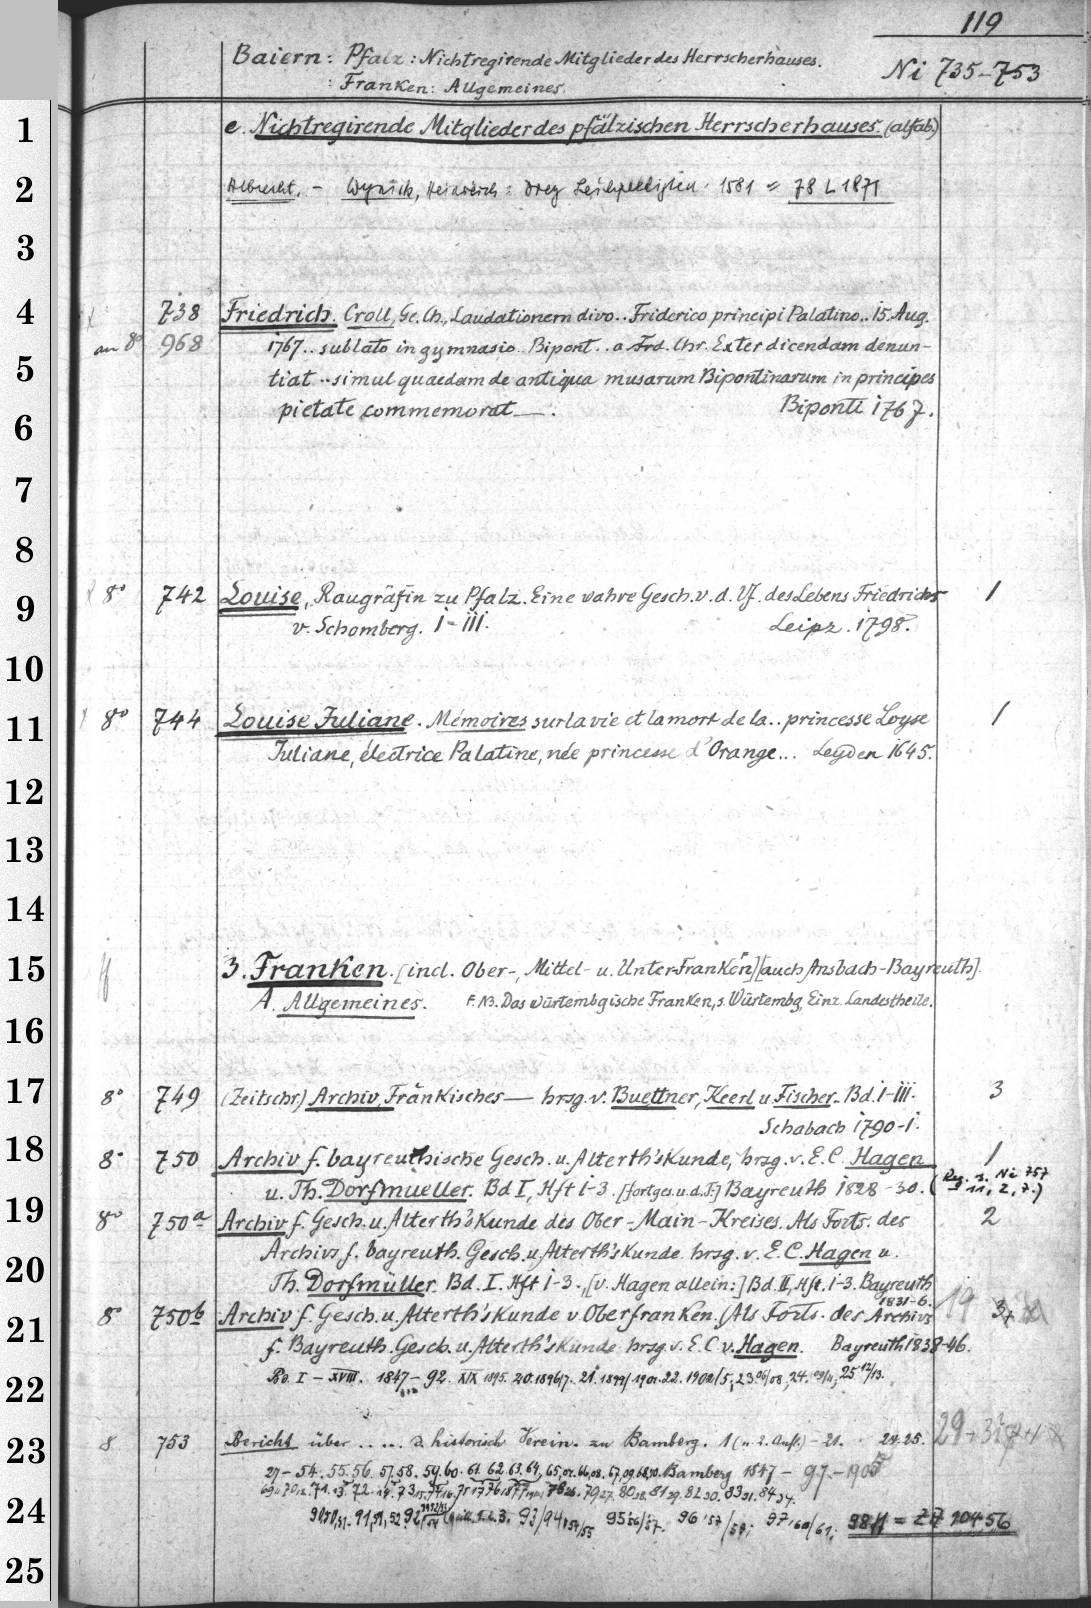 119
Baiern: Pfalz: Nichtregirende Mitglieder des Herrscherhauses.
Ni 735-753
: Franken: Allgemeines.
1
e. Nichtregirende Mitglieder des pfälzischen Herrscherhauses. (alfab.)
2
Albrecht. – Wyrich, Heinrich: Drey Leichpredigten. 1581 = 78 L 1871
3
4
738 Friedrich. Croll, Ge. Ch., Laudationem divo.. Friderico principi Palatino.. 15. Aug.
an 8° 968 1767.. sublato in gymnasio Bipont.. a Frd. Chr. Exter dicendam denun-
5
tiat.. simul quaedam de antiqua musarum Bipontinarum in principes
pietate commemorat —. Biponti 1767.
6
7
8
8° 742 Louise, Raugräfin zu Pfalz. Eine wahre Gesch. v. d. Vf. des Lebens Friedrichs 1
9
v. Schomberg. I-III. Leipz. 1798.
10
8° 744 Louise Juliane. Mémoires sur la vie et la mort de la.. princesse Loyse 1
11
Juliane, électrice Palatine, née princesse d'Orange... Leyden 1645.
12
13
14
15
3. Franken. [incl. Ober-, Mittel- u. Unter-Franken] [auch Ansbach-Bayreuth].
A. Allgemeines. F. NB. Das würtembgische Franken, s. Würtembg, Einz. Landestheile.
16
17
8° 749 (Zeitschr.) Archiv Fränkisches — hrsg. v. Buettner, Keerl u. Fischer. Bd. I-III. 3
Schabach 1790-1.
18
8° 750 Archiv f. bayreuthische Gesch. u. Alterth'skunde, hrsg. v. E. C. Hagen 1
u. Th. Dorfmueller. Bd I, Hft 1-3. [fortges. u. d. T.] Bayreuth 1828-30. (Reg. s. Ni 757
11, 2, 7.)
19
8° 750a Archiv f. Gesch. u. Alterth'skunde des Ober-Main-Kreises. Als Forts. des 2
Archivs f. bayreuth. Gesch. u. Alterth'skunde hrsg. v. E. C. Hagen u.
20
Th. Dorfmüller. Bd. I. Hft 1-3., [v. Hagen allein:] Bd. II, Hft. 1-3. Bayreuth
1831-6.
21
8° 750b Archiv f. Gesch. u. Alterth'skunde v. Oberfranken. (Als Forts. des Archivs 19
f. Bayreuth. Gesch. u. Alterth'skunde hrsg. v. E. C. v. Hagen. Bayreuth 1838-46.
22
Bd. I – XVIII. 1847-92. XIX 1895. 20. 1896/7. 21. 1899/1901. 22. 1902/5, 23. 06/08, 24. 09/11, 25 12/13.
23
8 753 Bericht über ..... d. historisch Verein. zu Bamberg. 1 (u. 2. Aufl.) – 21. 24. 25. 29
27-54. 55. 56. 57. 58. 59. 60. 61. 62. 63. 64, 65, Bamberg 1847 – 97. – 1905
24
93/94 95 96 97 98 ff = ZZ 10456
25